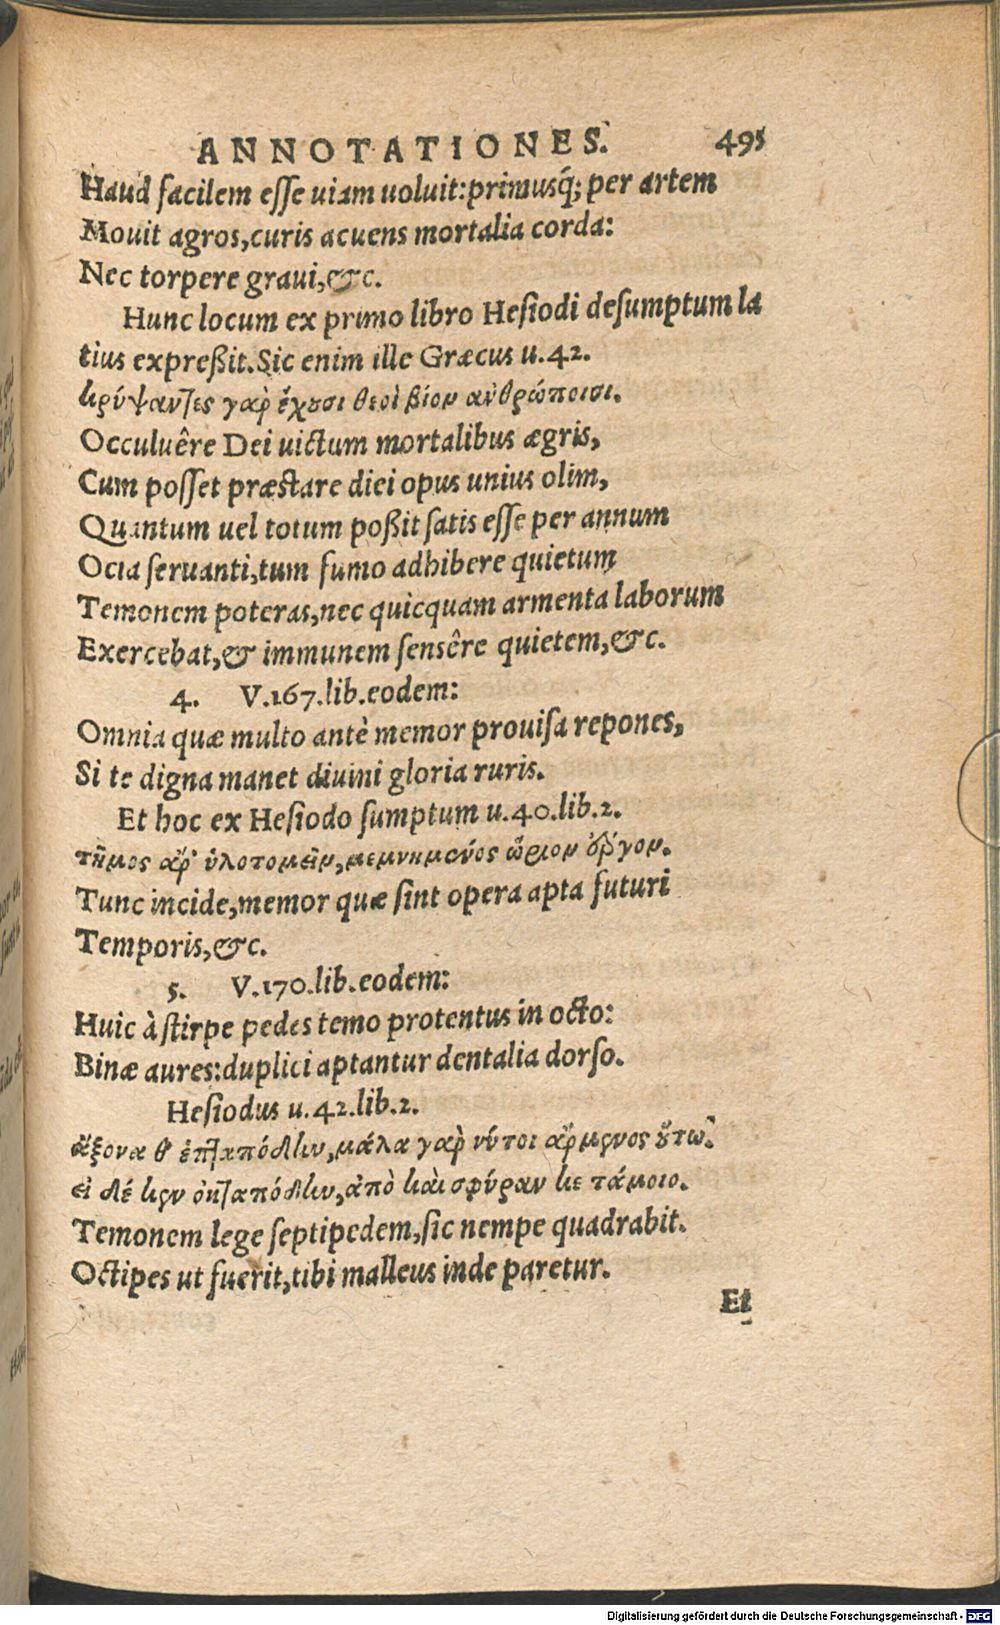 ANNOTATIONES. 495
Haud facilem esse uiam uoluit: primusq́; per artem
Mouit agros, curis acuens mortalia corda:
Nec torpere graui, &c.
Hunc locum ex primo libro Hesiodi desumptum la
tius expreßit. Sic enim ille Græcus u. 42.
κρύψαντες γὰρ ἔχουσι θεοὶ βίον ανθρώποισι.
Occuluêre Dei uictum mortalibus ægris,
Cum posset præstare diei opus unius olim,
Quantum uel totum poßit satis esse per annum
Ocia seruanti, tum fumo adhibere quietum
Temonem poteras, nec quicquam armenta laborum
Exercebat, & immunem sensêre quietem, &c.
4. V. 167. lib. eodem:
Omnia quæ multo antè memor prouisa repones,
Si te digna manet diuini gloria ruris.
Et hoc ex Hesiodo sumptum u. 40. lib. 2.
τῆμος ἄρ' ὑλοτομεῖν, μεμνημένος ὥριον ἔργον.
Tunc incide, memor quæ sint opera apta futuri
Temporis, &c.
5. V. 170. lib. eodem:
Huic à stirpe pedes temo protentus in octo:
Binæ aures: duplici aptantur dentalia dorso.
Hesiodus u. 42. lib. 2.
ἄξονα θ' ἑπταπόδην, μάλα γὰρ νύ τοι ἄρμενος οὕτω.
εἰ δέ κεν ὀκταπόδην, ἀπὸ καὶ σφύραν κε τάμοιο.
Temonem lege septipedem, sic nempe quadrabit.
Octipes ut fuerit, tibi malleus inde paretur.
Et
Digitalisierung gefördert durch die Deutsche Forschungsgemeinschaft - DFG